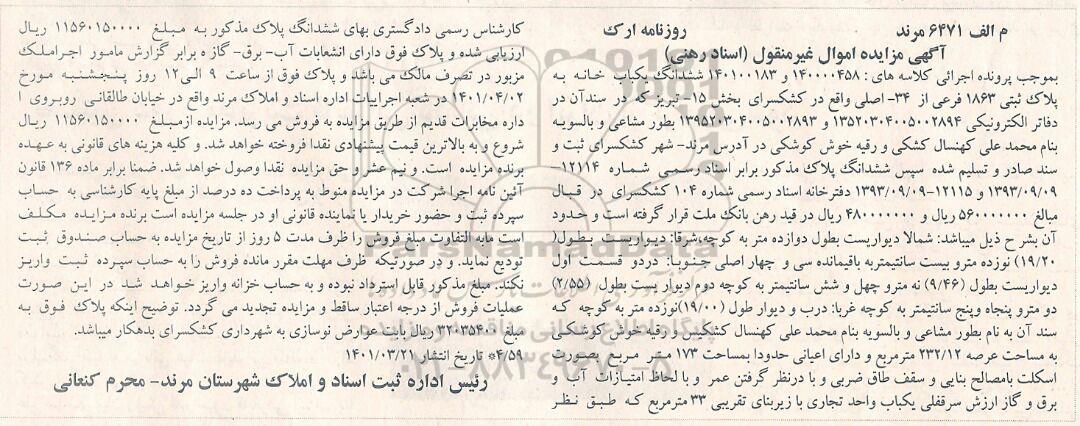 م الف ۶۴۷۱ مرند
روزنامه ارک
آگهی مزایده اموال غیرمنقول (اسناد رهنی)
بموجب پرونده اجرائی کلاسه های : ۱۴۰۰۰۰۴۵۸ و ۱۴۰۱۰۰۱۸۳ ششدانگ یکباب خانه به
پلاک ثبتی ۱۸۶۳ فرعی از ۳۴- اصلی واقع در کشکسرای بخش ۱۵- تبریز که در سندآن در
دفاتر الکترونیکی ۱۳۵۲۰۳۰۴۰۰۵۰۰۲۸۹۴ و ۱۳۹۵۲۰۳۰۴۰۰۵۰۰۲۸۹۳ بطور مشاعی و بالسویه
بنام محمد علی کهنسال کشکی و رقیه خوش کوشکی در آدرس مرند- شهر کشکسرای ثبت و
سند صادر و تسلیم شده سپس ششدانگ پلاک مذکور برابر اسناد رسمی شماره ۱۲۱۱۴-
۱۳۹۳/۰۹/۰۹ و ۱۲۱۱۵-۱۳۹۳/۰۹/۰۹ دفترخانه اسناد رسمی شماره ۱۰۴ کشکسرای در قبال
مبالغ ۵۶۰۰۰۰۰۰۰ ریال و ۴۸۰۰۰۰۰۰۰ ریال در قید رهن بانک ملت قرار گرفته است و حدود
آن بشر ح ذیل میباشد: شمالا دیواریست بطول دوازده متر به کوچه،شرقا: دیواریست بطول(
۱۹/۲۰) نوزده مترو بیست سانتیمتربه باقیمانده سی و چهار اصلی جنوبا: دردو قسمت اول
دیواریست بطول (۹/۴۶) نه مترو چهل و شش سانتیمتر به کوچه دوم دیوار یست بطول (۲/۵۵)
دو مترو پنجاه وپنج سانتیمتر به کوچه غربا: درب و دیوار طول (۱۹/۰۰)نوزده متر به کوچه که
سند آن به نام بطور مشاعی و بالسویه بنام محمد علی کهنسال کشکیس و رقیه خوش کوشکی
به مساحت عرصه ۲۳۲/۱۲ مترمربع و دارای اعیانی حدودا بمساحت ۱۷۳ متر مربع بصورت
اسکلت بامصالح بنایی و سقف طاق ضربی و با درنظر گرفتن عمر و با لحاظ امتیازات آب و
برق و گاز ارزش سرقفلی یکباب واحد تجاری با زیربنای تقریبی ۳۳ مترمربع که طبق نظر
کارشناس رسمی دادگستری بهای ششدانگ پلاک مذکور به مبلغ ۱۱۵۶۰۱۵۰۰۰۰ ریال
ارزیابی شده و پلاک فوق دارای انشعابات آب- برق- گاز ه برابر گزارش مامور اجراملک
مزبور در تصرف مالک می باشد و پلاک فوق از ساعت ۹ الی۱۲ روز پنجشنبه مورخ
۱۴۰۱/۰۴/۰۲ در شعبه اجراییات اداره اسناد و املاک مرند واقع در خیابان طالقانی روبروی ا
داره مخابرات قدیم از طریق مزایده به فروش می رسد. مزایده ازمبلغ ۱۱۵۶۰۱۵۰۰۰۰ ریال
شروع و به بالاترین قیمت پیشنهادی نقدا فروخته خواهد شد. و کلیه هزینه های قانونی به عهده
برنده مزایده است. و نیم عشر و حق مزایده نقدا وصول خواهد شد. ضمنا برابر ماده ۱۳۶ قانون
آئین نامه اجرا شرکت در مزایده منوط به پرداخت ده درصد از مبلغ پایه کارشناسی به حساب
سپرده ثبت و حضور خریدار یا نماینده قانونی او در جلسه مزایده است برنده مزایده مکلف
است مابه التفاوت مبلغ فروش را ظرف مدت ۵ روز از تاریخ مزایده به حساب صندوق ثبت
تودیع نماید. و در صورتیکه ظرف مهلت مقرر مانده فروش را به حساب سپرده ثبت واریز
نکند. مبلغ مذکور قابل استرداد نبوده و به حساب خزانه واریز خواهد شد در این صورت
عملیات فروش از درجه اعتبار ساقط و مزایده تجدید می گردد. توضیح اینکه پلاک فوق به
مبلغ ۳۲۰۳۵۴۰۰ ریال بابت عوارض نوسازی به شهرداری کشکسرای بدهکار میباشد.
۴/۵۹* تاریخ انتشار ۱۴۰۱/۰۳/۲۱
رئیس اداره ثبت اسناد و املاک شهرستان مرند- محرم کنعانی